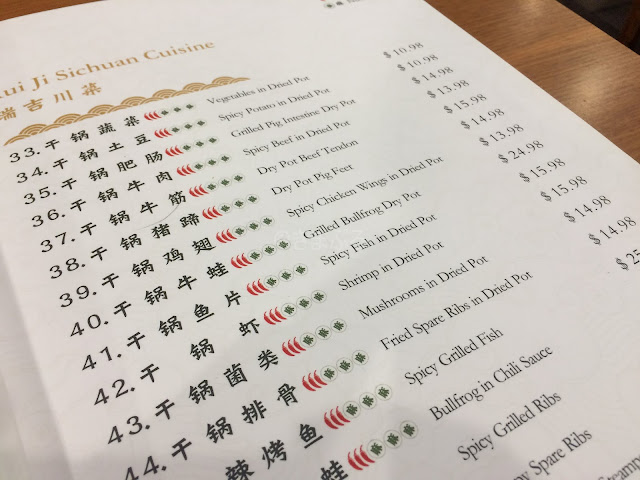 ui Ji Sichuan Cuisine
瑞吉川菜
33. 干锅蔬菜 Vegetables in Dried Pot $10.98
34. 干锅土豆 Spicy Potato in Dried Pot $10.98
35. 干锅肥肠 Grilled Pig Intestine Dry Pot $14.98
36. 干锅牛肉 Spicy Beef in Dried Pot $13.98
37. 干锅牛筋 Dry Pot Beef Tendon $15.98
38. 干锅猪蹄 Dry Pot Pig Feet $14.98
39. 干锅鸡翅 Spicy Chicken Wings in Dried Pot $13.98
40. 干锅牛蛙 Grilled Bullfrog Dry Pot $24.98
41. 干锅鱼片 Spicy Fish in Dried Pot $15.98
42. 干锅虾 Shrimp in Dried Pot $15.98
43. 干锅菌类 Mushrooms in Dried Pot $14.98
44. 干锅排骨 Fried Spare Ribs in Dried Pot $14.98
辣烤鱼 Spicy Grilled Fish $25
蛙 Bullfrog in Chili Sauce
Spicy Grilled Ribs
Spare Ribs